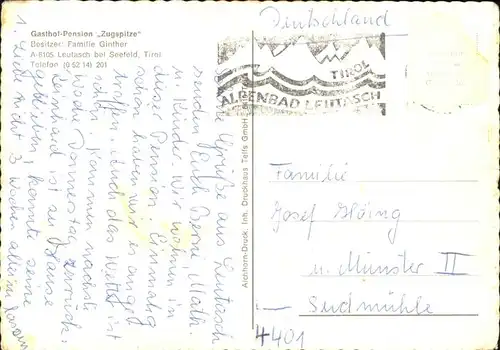 Gasthof-Pension „Zugspitze"
Besitzer: Familie Ginther
A-8105 Leutasch bei Seefeld, Tirol
Telefon (0 52 14) 201
Deutschland
TIROL
ALPENBAD LEUTASCH
Aichhorn-Druck, Inh. Druckhaus Telfs GmbH
Viele Grüße aus Leutasch
senden Euch Berni, Math.
u. Kinder. Wir wohnen in
dieser Pension. Einmalig
schön haben wir es ange-
troffen. Auch das Wetter ist
schön. Kommen nächste
Woche Donnerstag zurück.
Bernhard ist zu Hause
geblieben, konnte seine
1. Liebe nicht 3 Wochen allein lassen
Familie
Josef Höing
u. Münster II
Sudmühle
4401